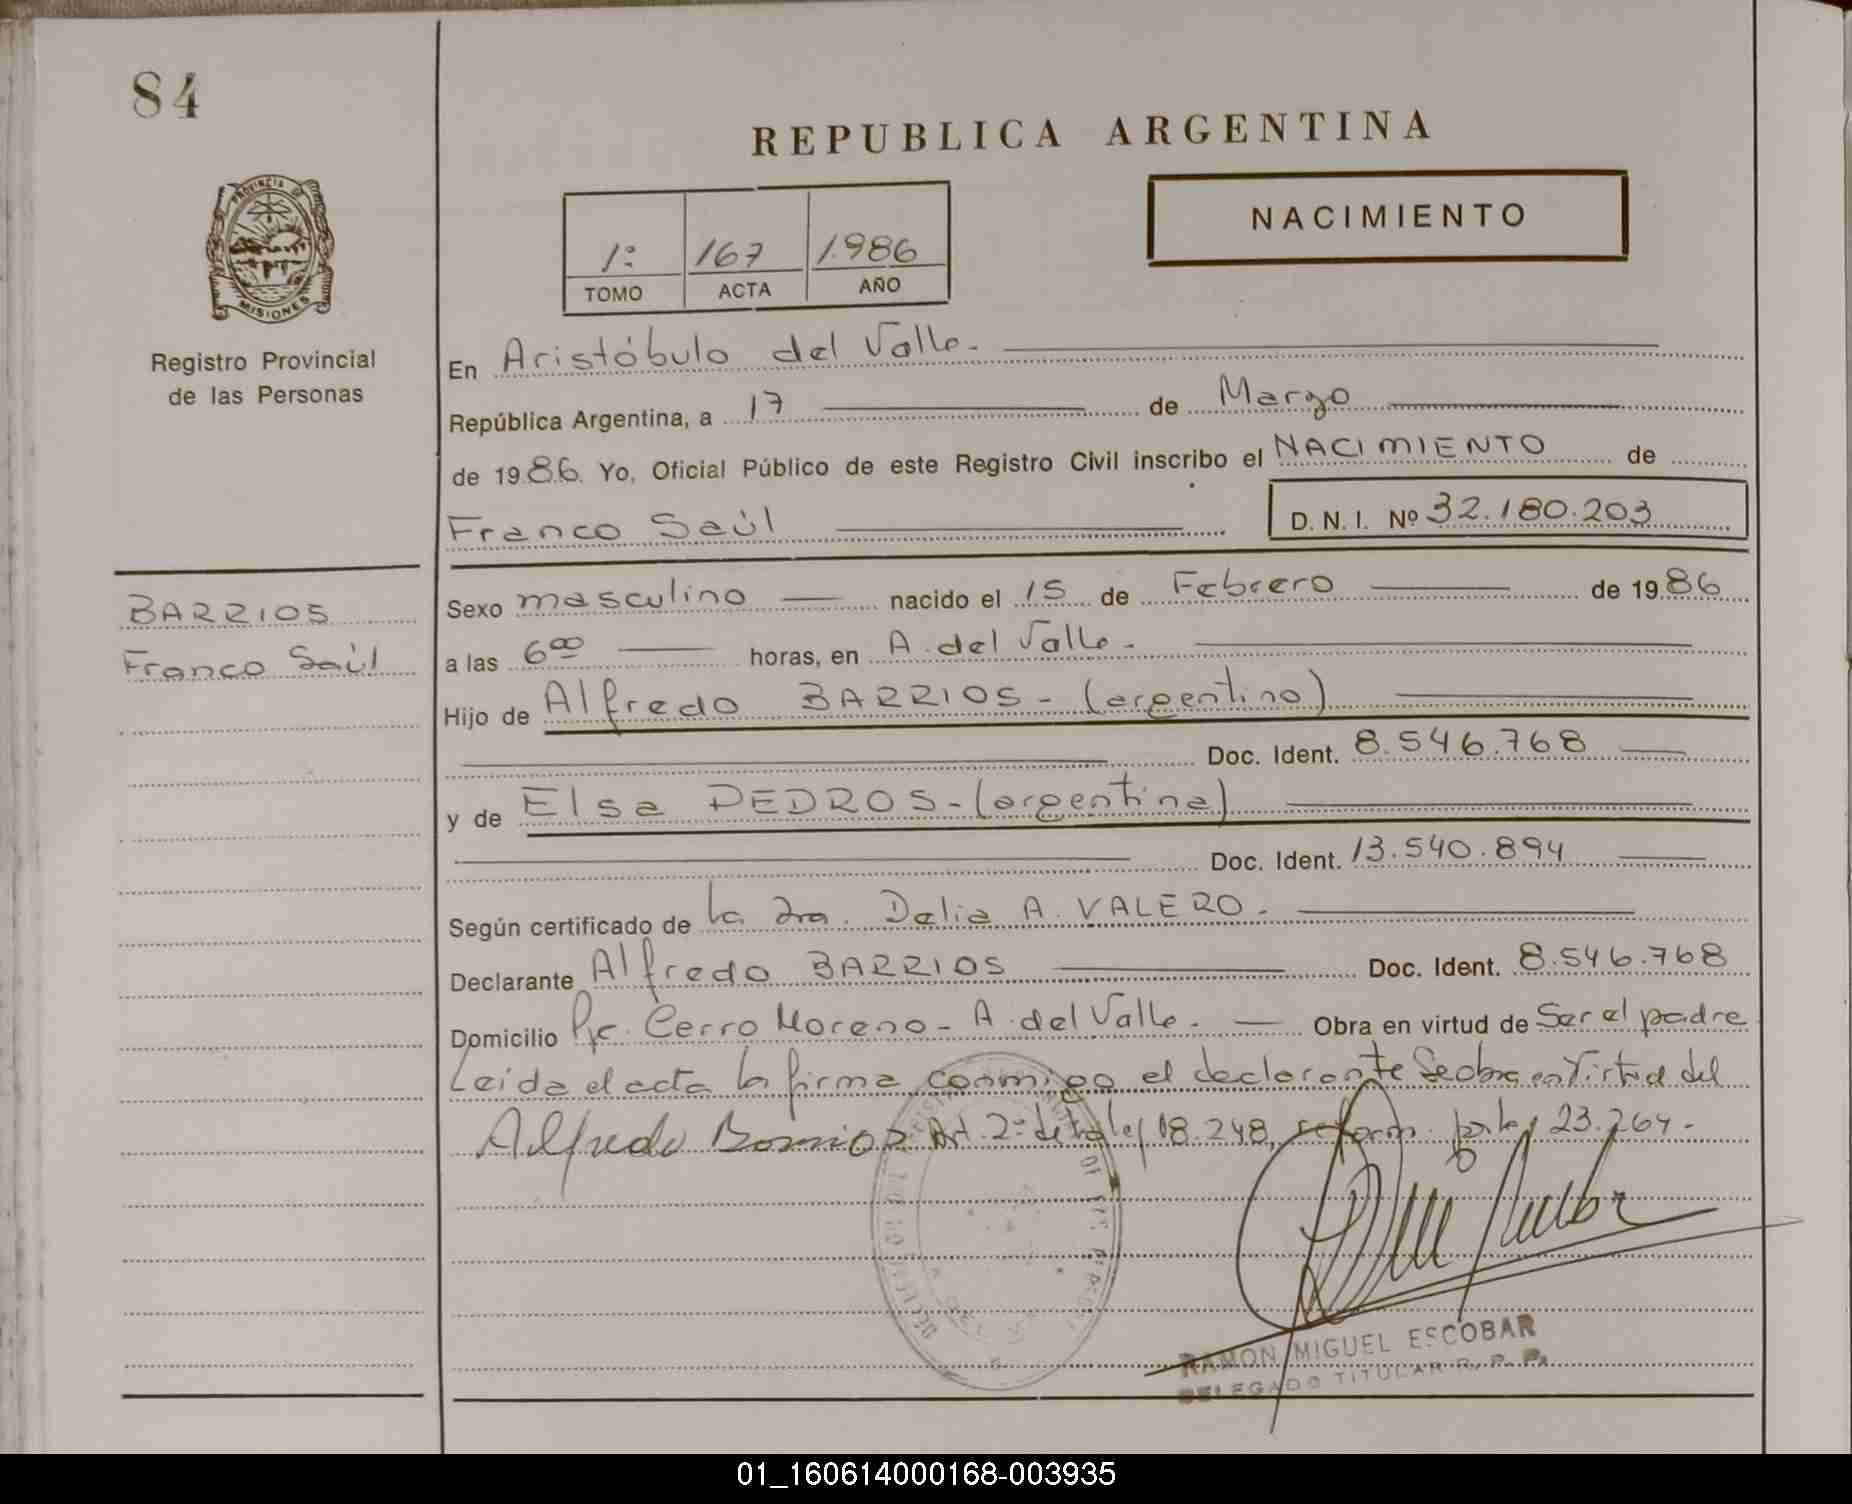 84
REPUBLICA ARGENTINA
PROVINCIA DE
MISIONES
NACIMIENTO
1º 167 1.986
TOMO ACTA AÑO
Registro Provincial
de las Personas
En Aristóbulo del Valle.
República Argentina, a 17 de Marzo
de 1986. Yo, Oficial Público de este Registro Civil inscribo el NACIMIENTO de
Franco Saúl D. N. I. Nº 32.180.203
BARRIOS
Franco Saúl
Sexo masculino nacido el 15 de Febrero de 1986
a las 6⁰⁰ horas, en A. del Valle.
Hijo de Alfredo BARRIOS - (argentino)
Doc. Ident. 8.546.768
y de Elsa PEDROS - (argentina)
Doc. Ident. 13.540.894
Según certificado de la Dra. Delia A. VALERO.
Declarante Alfredo BARRIOS Doc. Ident. 8.546.768
Domicilio Pje. Cerro Moreno - A. del Valle. Obra en virtud de Ser el padre
Leída el acta la firma conmigo el declarante Se obra en Virtud del
Alfredo Barrios Art. 2º de la ley 18.248, reform. por ley 23.264.
RAMON MIGUEL ESCOBAR
DELEGADO TITULAR R. P. P.
01_160614000168-003935